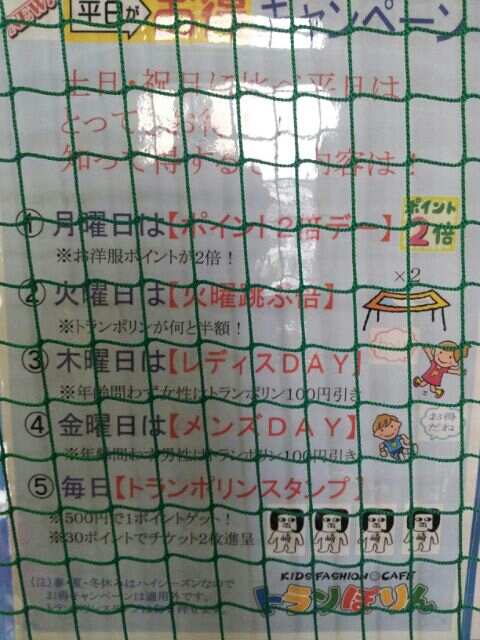 NEW!
平日が
お得
キャンペーン
土日・祝日に比べ平日は
とって
知って得する 内容は！
① 月曜日は【ポイント２倍デー】
ポイント
2倍
※お洋服ポイントが2倍！
② 火曜日は【火曜跳ぶ倍】
×2
※トランポリンが何と半額！
③ 木曜日は【レディスＤＡＹ】
※年齢問わず女性はトランポリン100円引き
④ 金曜日は【メンズＤＡＹ】
お得
だね
※年齢問わず男性はトランポリン100円引き
⑤ 毎日【トランポリンスタンプ】
※500円で1ポイントゲット！
※30ポイントでチケット2枚進呈
(注) 春・夏・冬休みはハイシーズンなので
お得キャンペーンは適用外です。
KIDS FASHION CAFE
トランぽりん